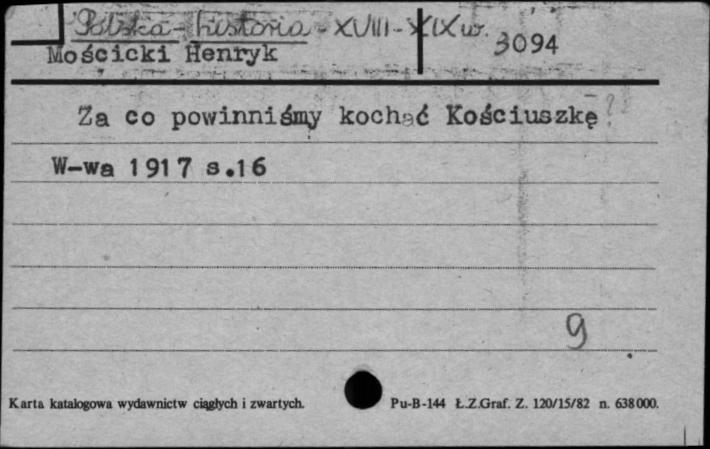 Polska - historia - XVIII - XIX w.
3094
Mościcki Henryk
Za co powinniśmy kochać Kościuszkę?
W-wa 1917 s.16
9
Karta katalogowa wydawnictw ciągłych i zwartych.
Pu-B-144 Ł.Z.Graf. Z. 120/15/82 n. 638000.